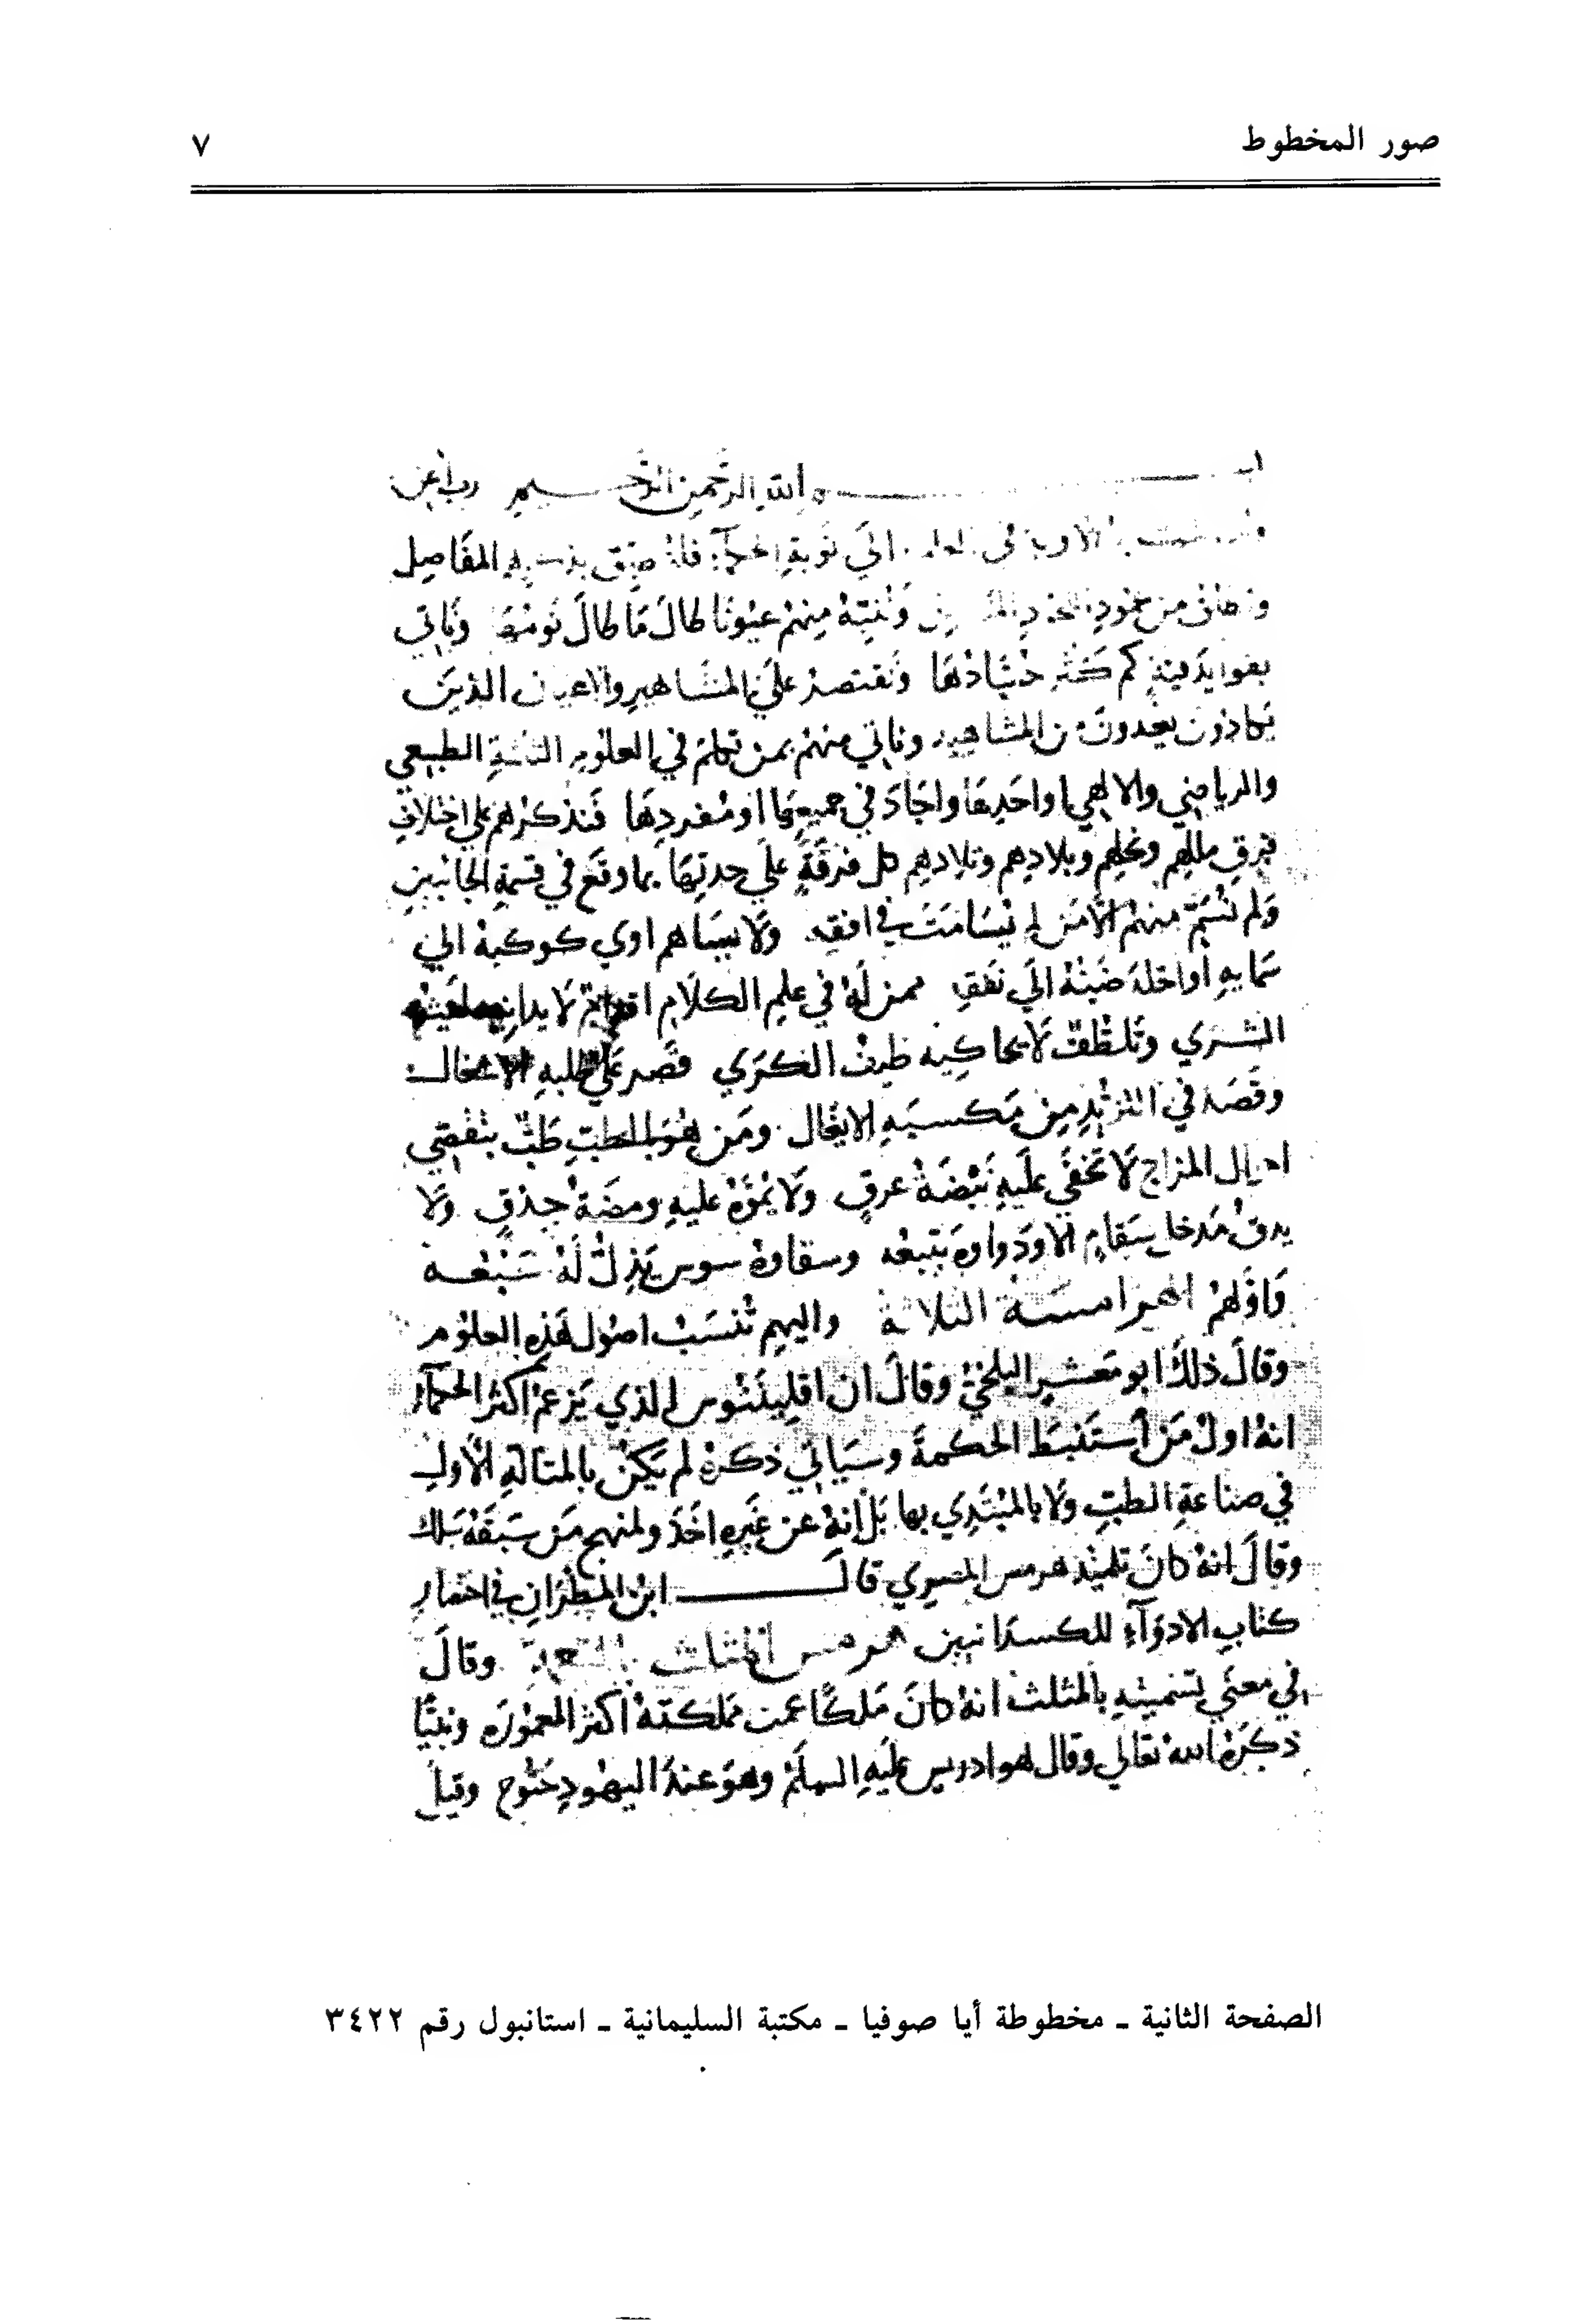 صور المخطوط ٧
الله الرحمن الرحيم رب أعن
الى نوبة الحكماء المفاصل
من خمود وننبه منهم عيونا طال ما طال نومها وناتي
ونقتصر على المشاهير والاعيان الذين
يكادون يعدون من المشاهير وناتي منهم بمن تكلم في العلوم الثلثة الطبيعي
والرياضي والالهي او احدها واجاد في جميعها او مفردها فنذكرهم على اختلاف
فرق مللهم ونحلهم وبلادهم وتلادهم كل فرقة على حدتها بما وقع في قسمة الجانبين
ولم نسم منهم الا من لم يسامت في افقه ولا يساهم اوي كوكبه الي
سمايه او اخله ضبنه الي نفقه ممن له في علم الكلام لا يدانيه
السري وتلطف لا يحاكيه طيف الكري قصر على طلبه
وقصد في التزيد من مكسبه الايغال ومن هو بالطب طب يتقصي
احيال المزاج لا تخفي عليه نبضة عرق ولا يموه عليه ومضة حذق ولا
يدق مدخل سقام الا ودواوه يتبعه
واولهم الهرامسة الثلاثة واليهم تنسب اصول هذه العلوم
وقال ذلك ابو معشر البلخي وقال ان الذي يزعم اكثر الحكماء
انه اول من استنبط الحكمة وسياتي ذكره لم يكن بالمتاله الاول
في صناعة الطب ولا بالمبتدي بها بل انه عن غيره اخذ ولمنهج من سبقه سلك
وقال انه كان تلميذ هرمس المصري قال ابن المطران في اختصار
كتاب الادوآء للكسدانيين هرمس المثلث وقال
في معني تسميته بالمثلث انه كان ملكا عمت مملكته اكثر المعموره ونبيا
ذكره الله تعالي وقال هو ادريس عليه السلم وهو عند اليهود خنوخ وقيل
الصفحة الثانية ـ مخطوطة أيا صوفيا ـ مكتبة السليمانية ـ استانبول رقم ٣٤٢٢